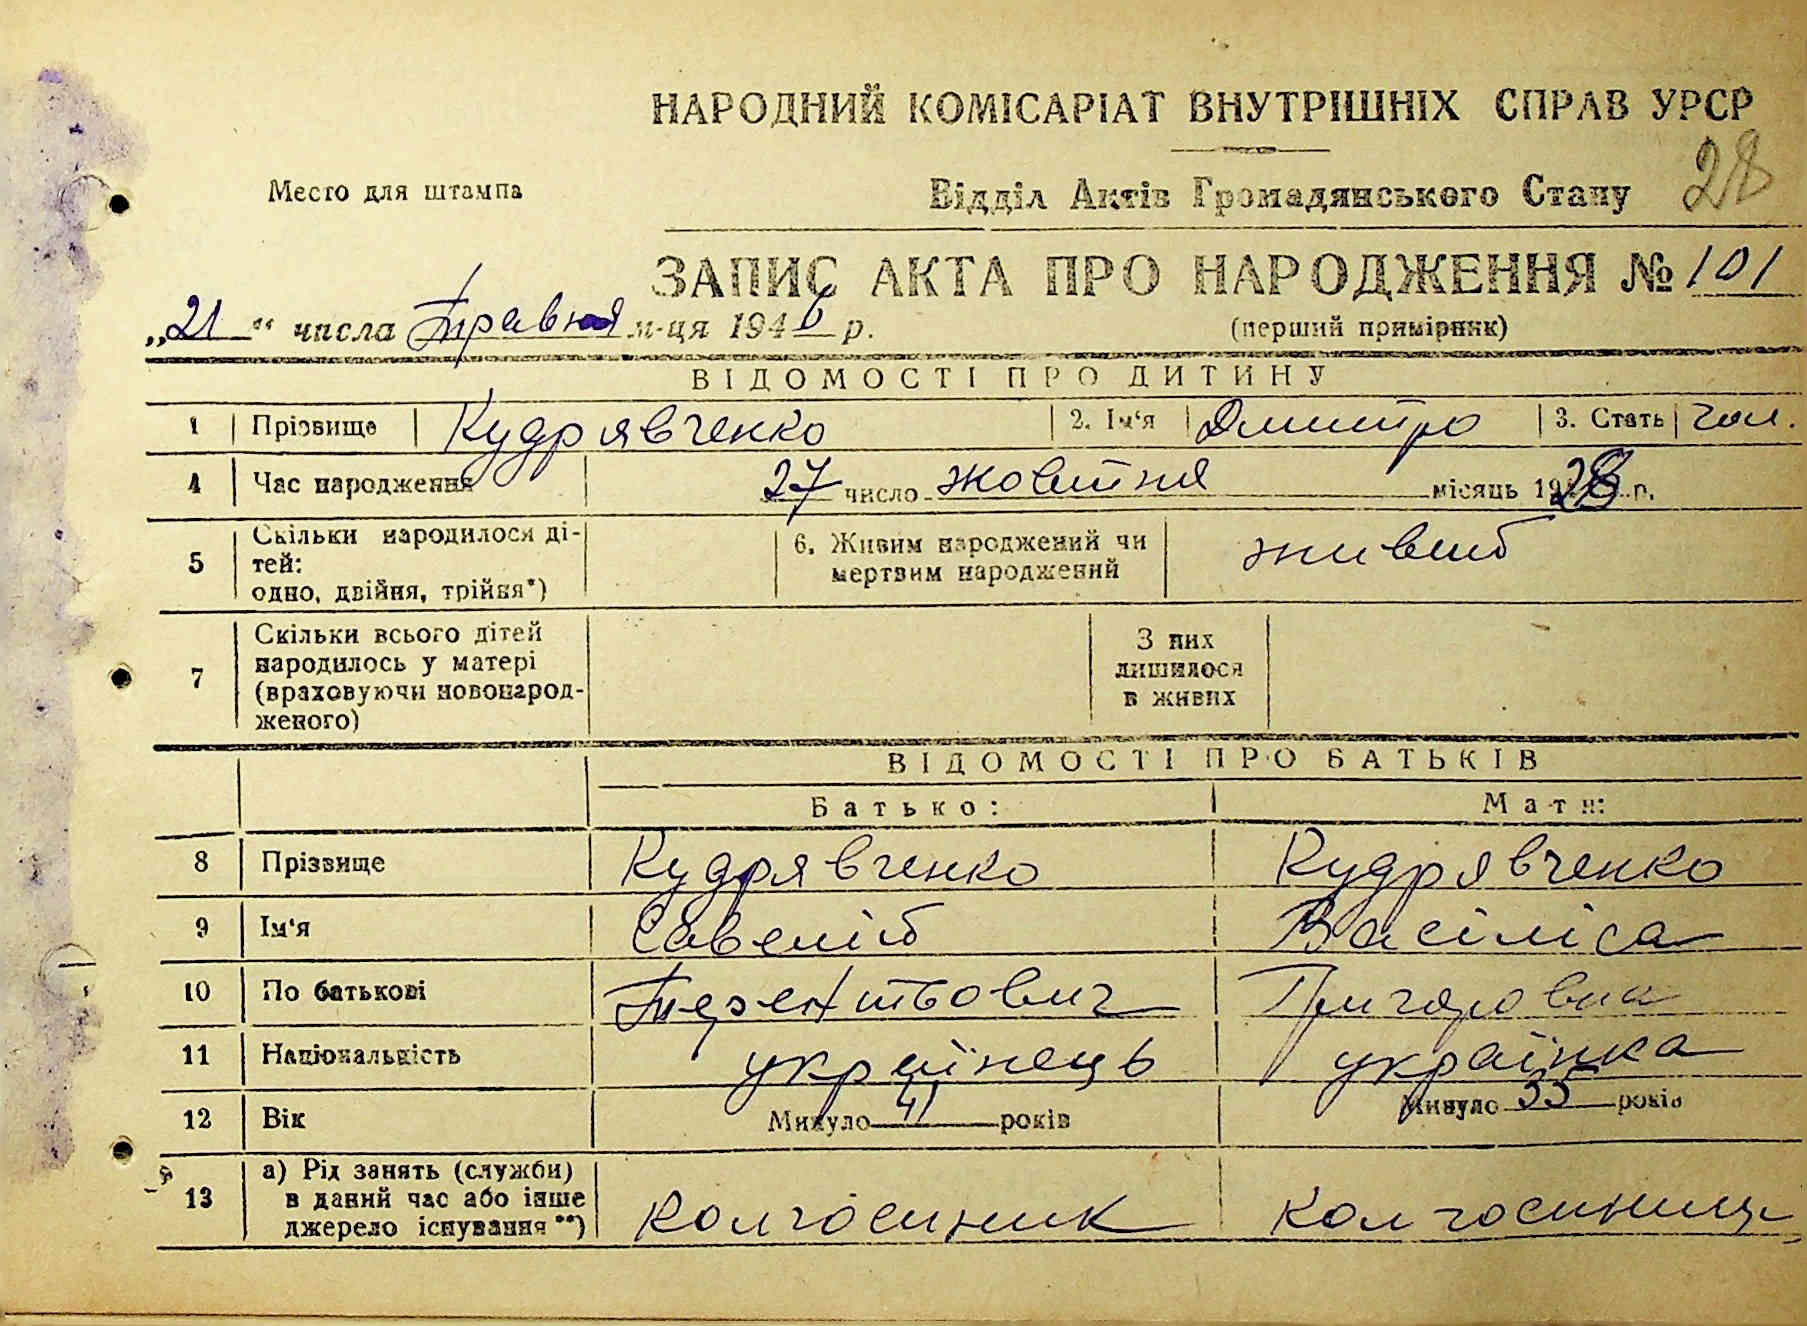 НАРОДНИЙ КОМІСАРІАТ ВНУТРІШНІХ СПРАВ УРСР
Место для штампа
Відділ Актів Громадянського Стану 28
ЗАПИС АКТА ПРО НАРОДЖЕННЯ № 101
„21“ числа Травня м-ця 1946 р. (перший примірник)
ВІДОМОСТІ ПРО ДИТИНУ
1 Прізвище Кудрявченко 2. Ім'я Дмитро 3. Стать чол.
4 Час народження 27 число жовтня місяць 1928 р.
5 Скільки народилося ді-
тей:
одно, двійня, трійня*)
6. Живим народжений чи
мертвим народжений
живий
7 Скільки всього дітей
народилось у матері
(враховуючи новонарод-
женого)
З них
лишилося
в живих
ВІДОМОСТІ ПРО БАТЬКІВ
Батько: Мати:
8 Прізвище Кудрявченко Кудрявченко
9 Ім'я Савелій Васіліса
10 По батькові Терентьович Григоровна
11 Національність українець українка
12 Вік Минуло 41 років Минуло 35 років
13 а) Рід занять (служби)
в даний час або інше
джерело існування**)
колгоспник колгоспниця